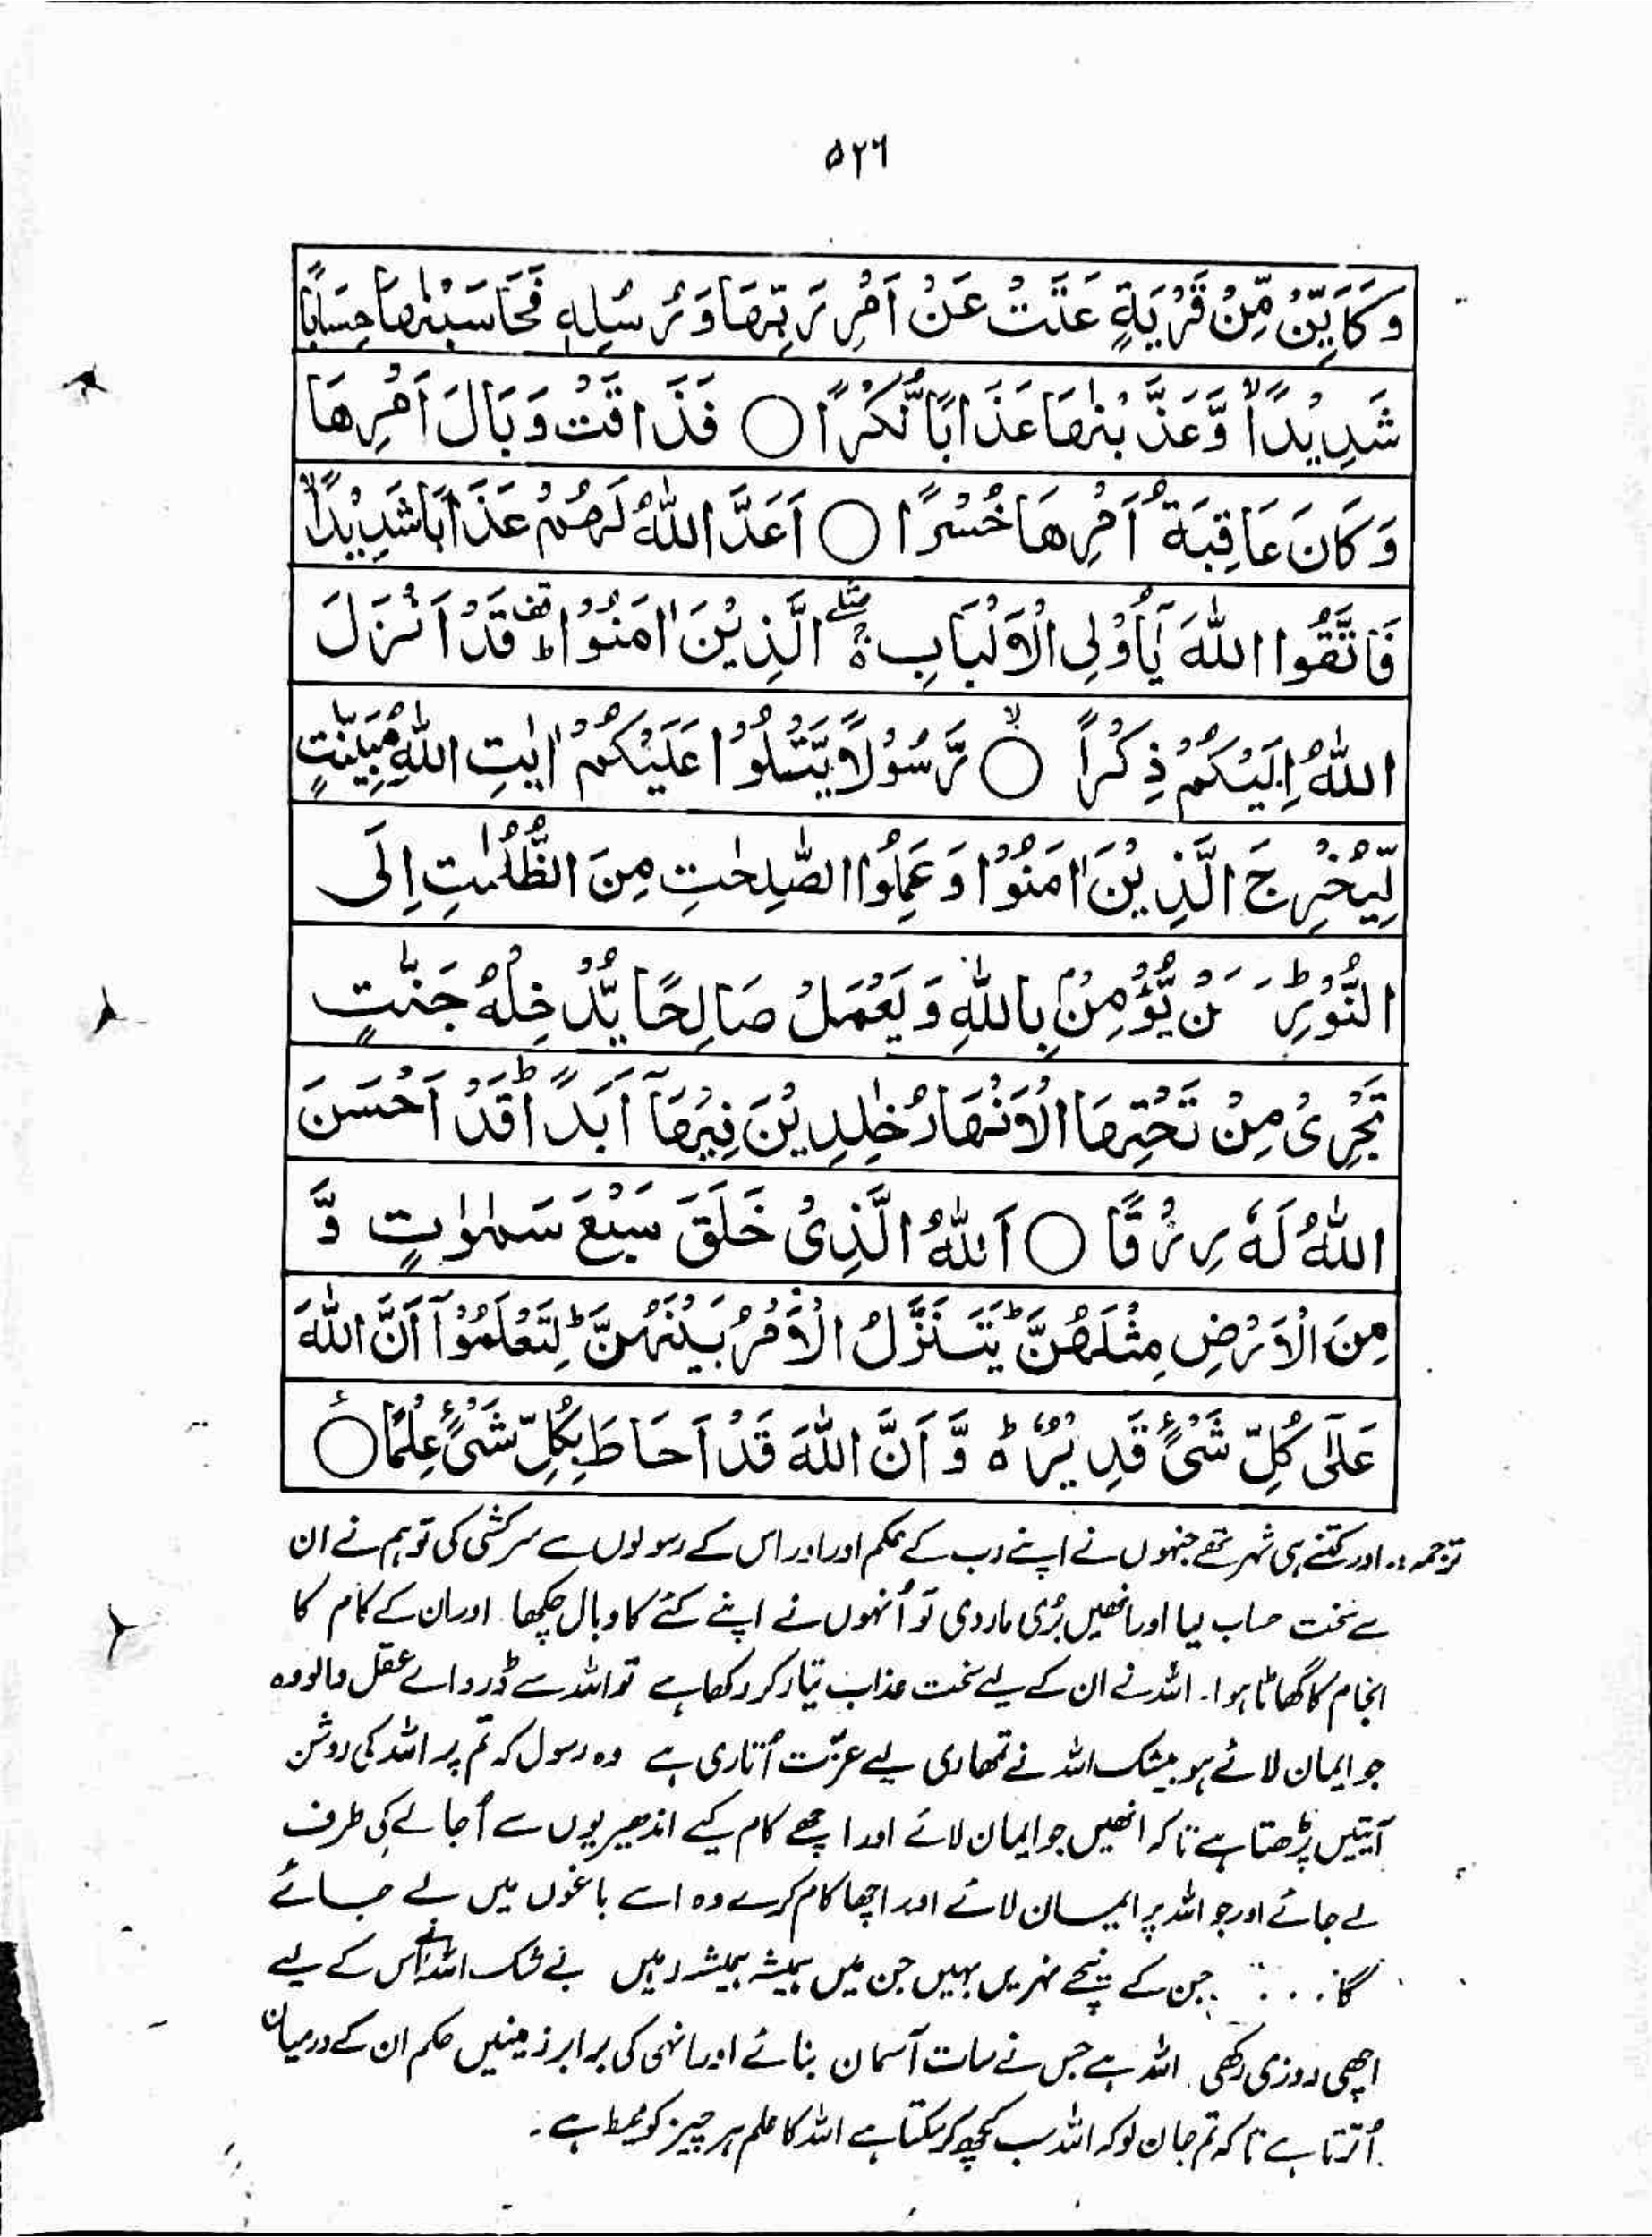 ۵۲۶
وَكَاَيِّنْ مِّنْ قَرْيَةٍ عَتَتْ عَنْ اَمْرِ رَبِّهَا وَرُسُلِهٖ فَحَاسَبْنٰهَا حِسَابًا
شَدِيْدًا ۙ وَّعَذَّبْنٰهَا عَذَابًا نُّكْرًا ○ فَذَاقَتْ وَبَالَ اَمْرِهَا
وَكَانَ عَاقِبَةُ اَمْرِهَا خُسْرًا ○ اَعَدَّ اللّٰهُ لَهُمْ عَذَابًا شَدِيْدًا ۙ
فَاتَّقُوا اللّٰهَ يٰٓاُولِى الْاَلْبَابِ الَّذِيْنَ اٰمَنُوْا ۛ قَدْ اَنْزَلَ
اللّٰهُ اِلَيْكُمْ ذِكْرًا ○ رَّسُوْلًا يَّتْلُوْا عَلَيْكُمْ اٰيٰتِ اللّٰهِ مُبَيِّنٰتٍ
لِّيُخْرِجَ الَّذِيْنَ اٰمَنُوْا وَعَمِلُوا الصّٰلِحٰتِ مِنَ الظُّلُمٰتِ اِلَى
النُّوْرِ ؕ نْ يُّؤْمِنْۢ بِاللّٰهِ وَيَعْمَلْ صَالِحًا يُّدْخِلْهُ جَنّٰتٍ
تَجْرِىْ مِنْ تَحْتِهَا الْاَنْهَارُ خٰلِدِيْنَ فِيْهَآ اَبَدًا ؕ قَدْ اَحْسَنَ
اللّٰهُ لَهٗ رِزْقًا ○ اَللّٰهُ الَّذِىْ خَلَقَ سَبْعَ سَمٰوٰتٍ وَّ
مِنَ الْاَرْضِ مِثْلَهُنَّ ؕ يَتَنَزَّلُ الْاَمْرُ بَيْنَهُنَّ ؕ لِتَعْلَمُوْٓا اَنَّ اللّٰهَ
عَلٰى كُلِّ شَىْءٍ قَدِيْرٌ ۙ وَّ اَنَّ اللّٰهَ قَدْ اَحَاطَ بِكُلِّ شَىْءٍ عِلْمًا ○
ترجمہ :۔ اور کتنے ہی شہر تھے جنہوں نے اپنے رب کے حکم اور اور اس کے رسولوں سے سرکشی کی تو ہم نے ان
سے سخت حساب لیا اور انھیں بُری مار دی تو اُنہوں نے اپنے کئے کا وبال چکھا اور ان کے کام کا
انجام کا گھاٹا ہوا۔ اللہ نے ان کے لیے سخت عذاب تیار کر رکھا ہے تو اللہ سے ڈرو اے عقل والو وہ
جو ایمان لائے ہو بیشک اللہ نے تمھاری لیے عزّت اُتاری ہے وہ رسول کہ تم پر اللہ کی روشن
آیتیں پڑھتا ہے تاکہ انھیں جو ایمان لائے اور اچھے کام کیے اندھیریوں سے اُجالے کی طرف
لے جائے اور جو اللہ پر ایمان لائے اور اچھا کام کرے وہ اسے باغوں میں لے جائے
گا .... جن کے نیچے نہریں بہیں جن میں ہمیشہ ہمیشہ رہیں بے شک اللہ نے اُس کے لیے
اچھی روزی رکھی اللہ ہے جس نے سات آسمان بنائے اور انہی کی برابر زمینیں حکم ان کے درمیان
اُترتا ہے تاکہ تم جان لو کہ اللہ سب کچھ کر سکتا ہے اللہ کا علم ہر چیز کو محیط ہے۔